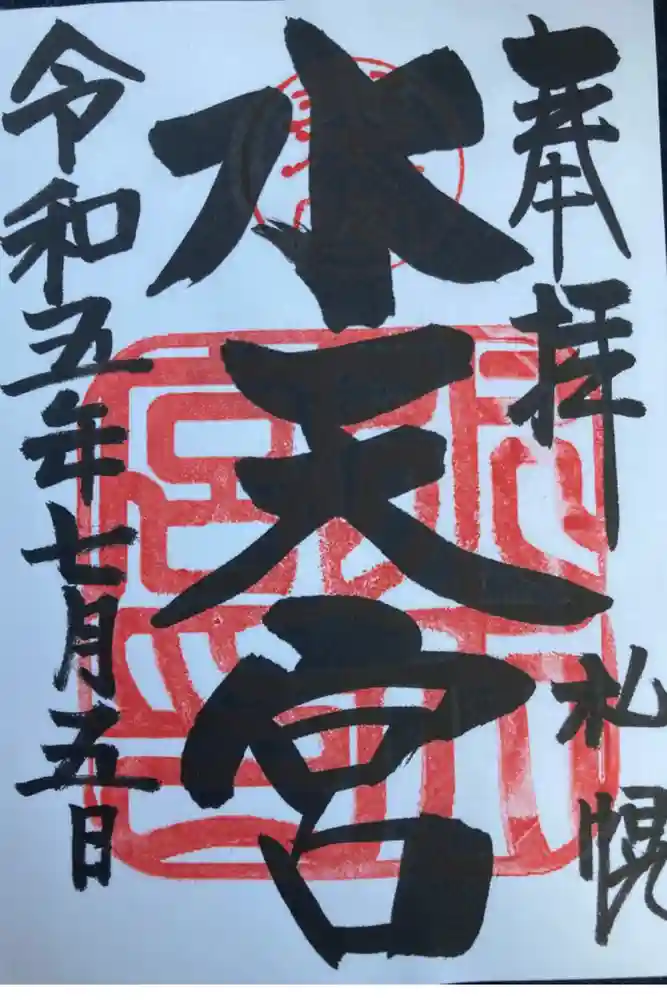 奉拝
札幌
水天宮
令和五年七月五日